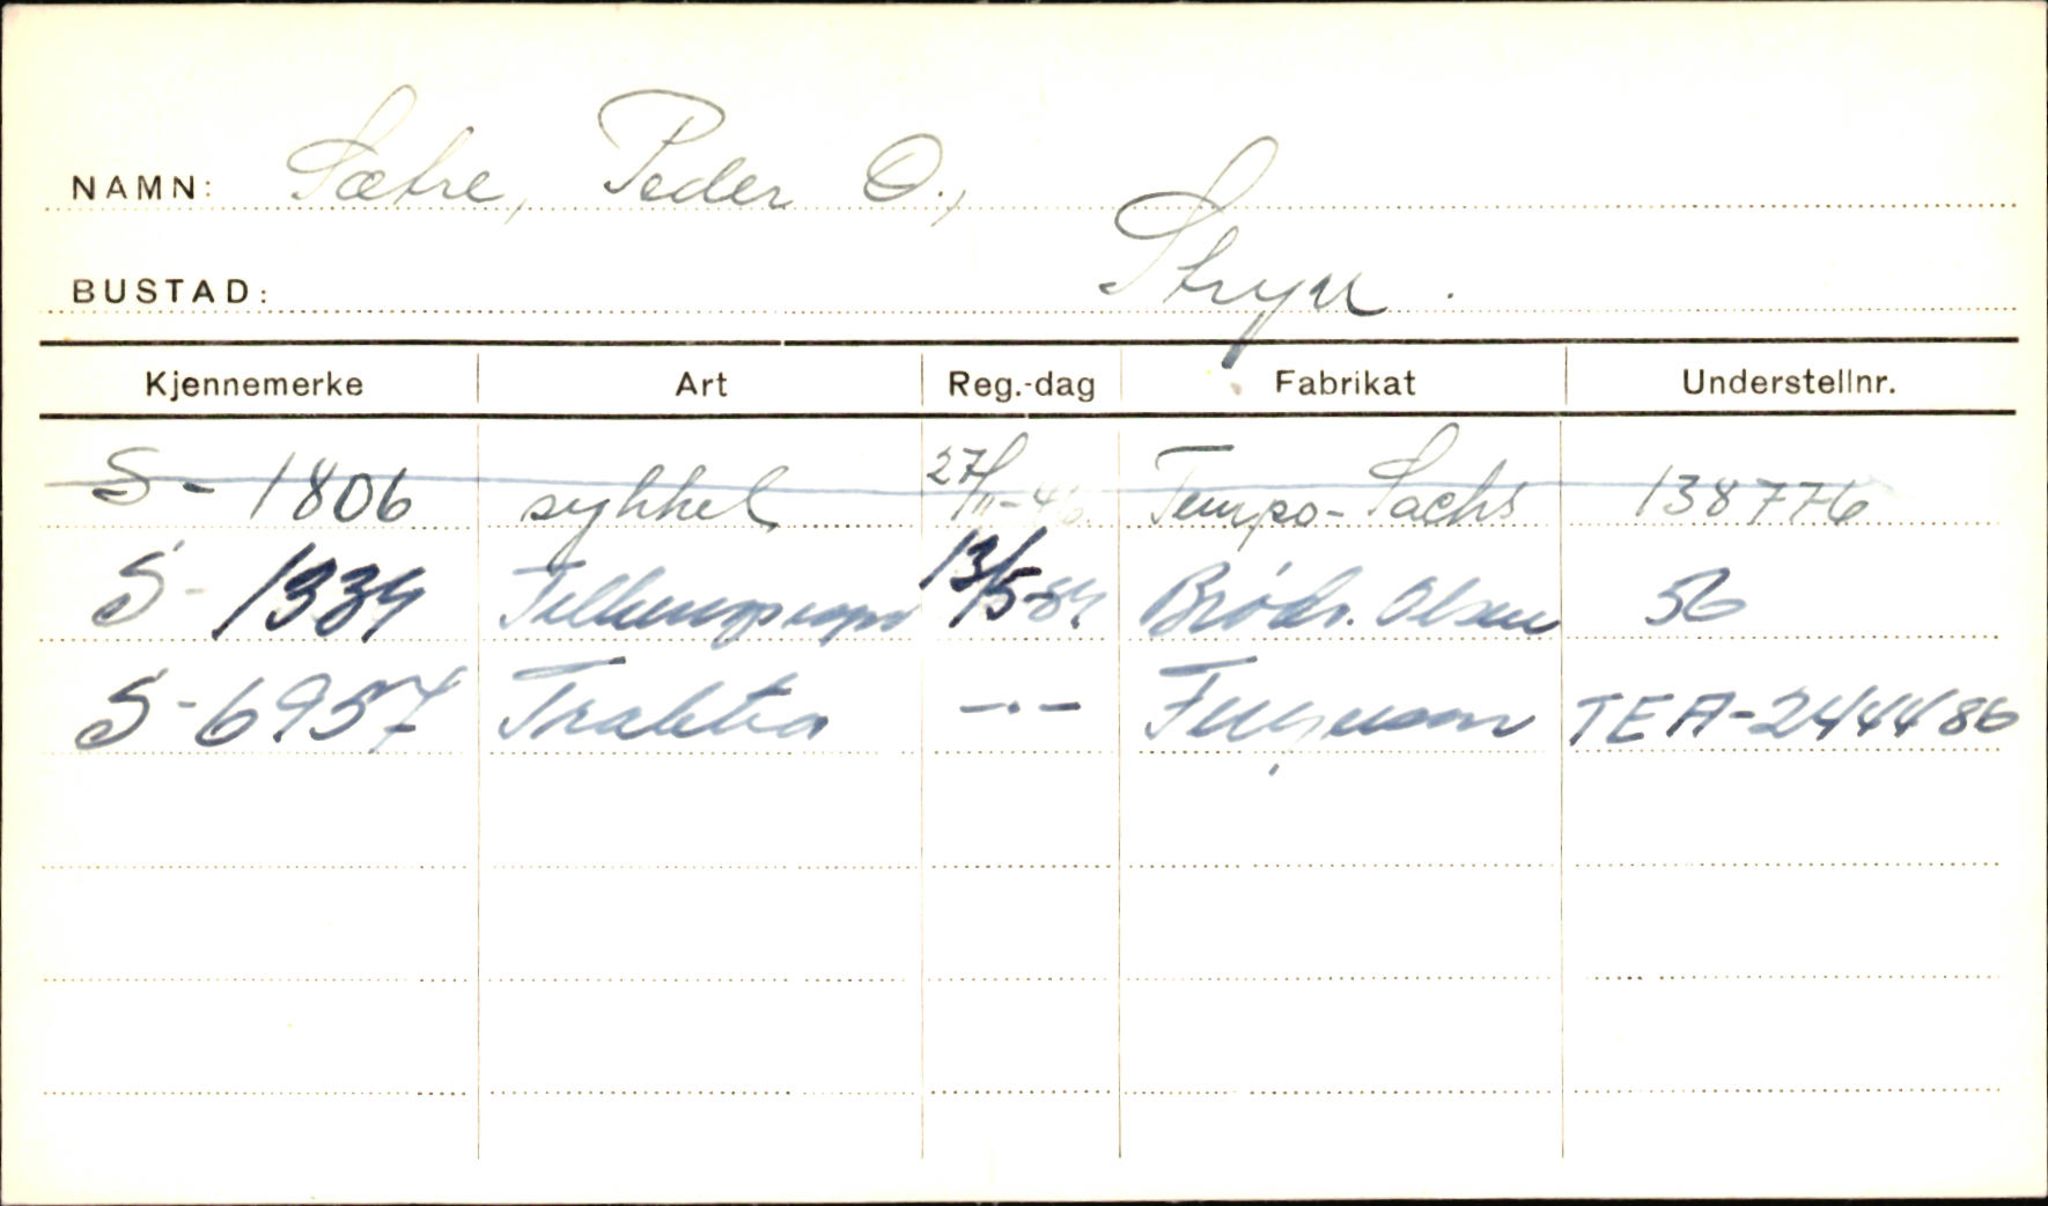 NAMN: Sætre, Peder O.,
BUSTAD: Stryn.
Kjennemerke Art Reg.-dag Fabrikat Understellnr.
S - 1806 sykkel 27/11-46 Tempo-Sachs 138776
S - 1934 13/5-54 Brødr. Olsen 56
S - 6957 Traktor -·- Ferguson TEA-2444486